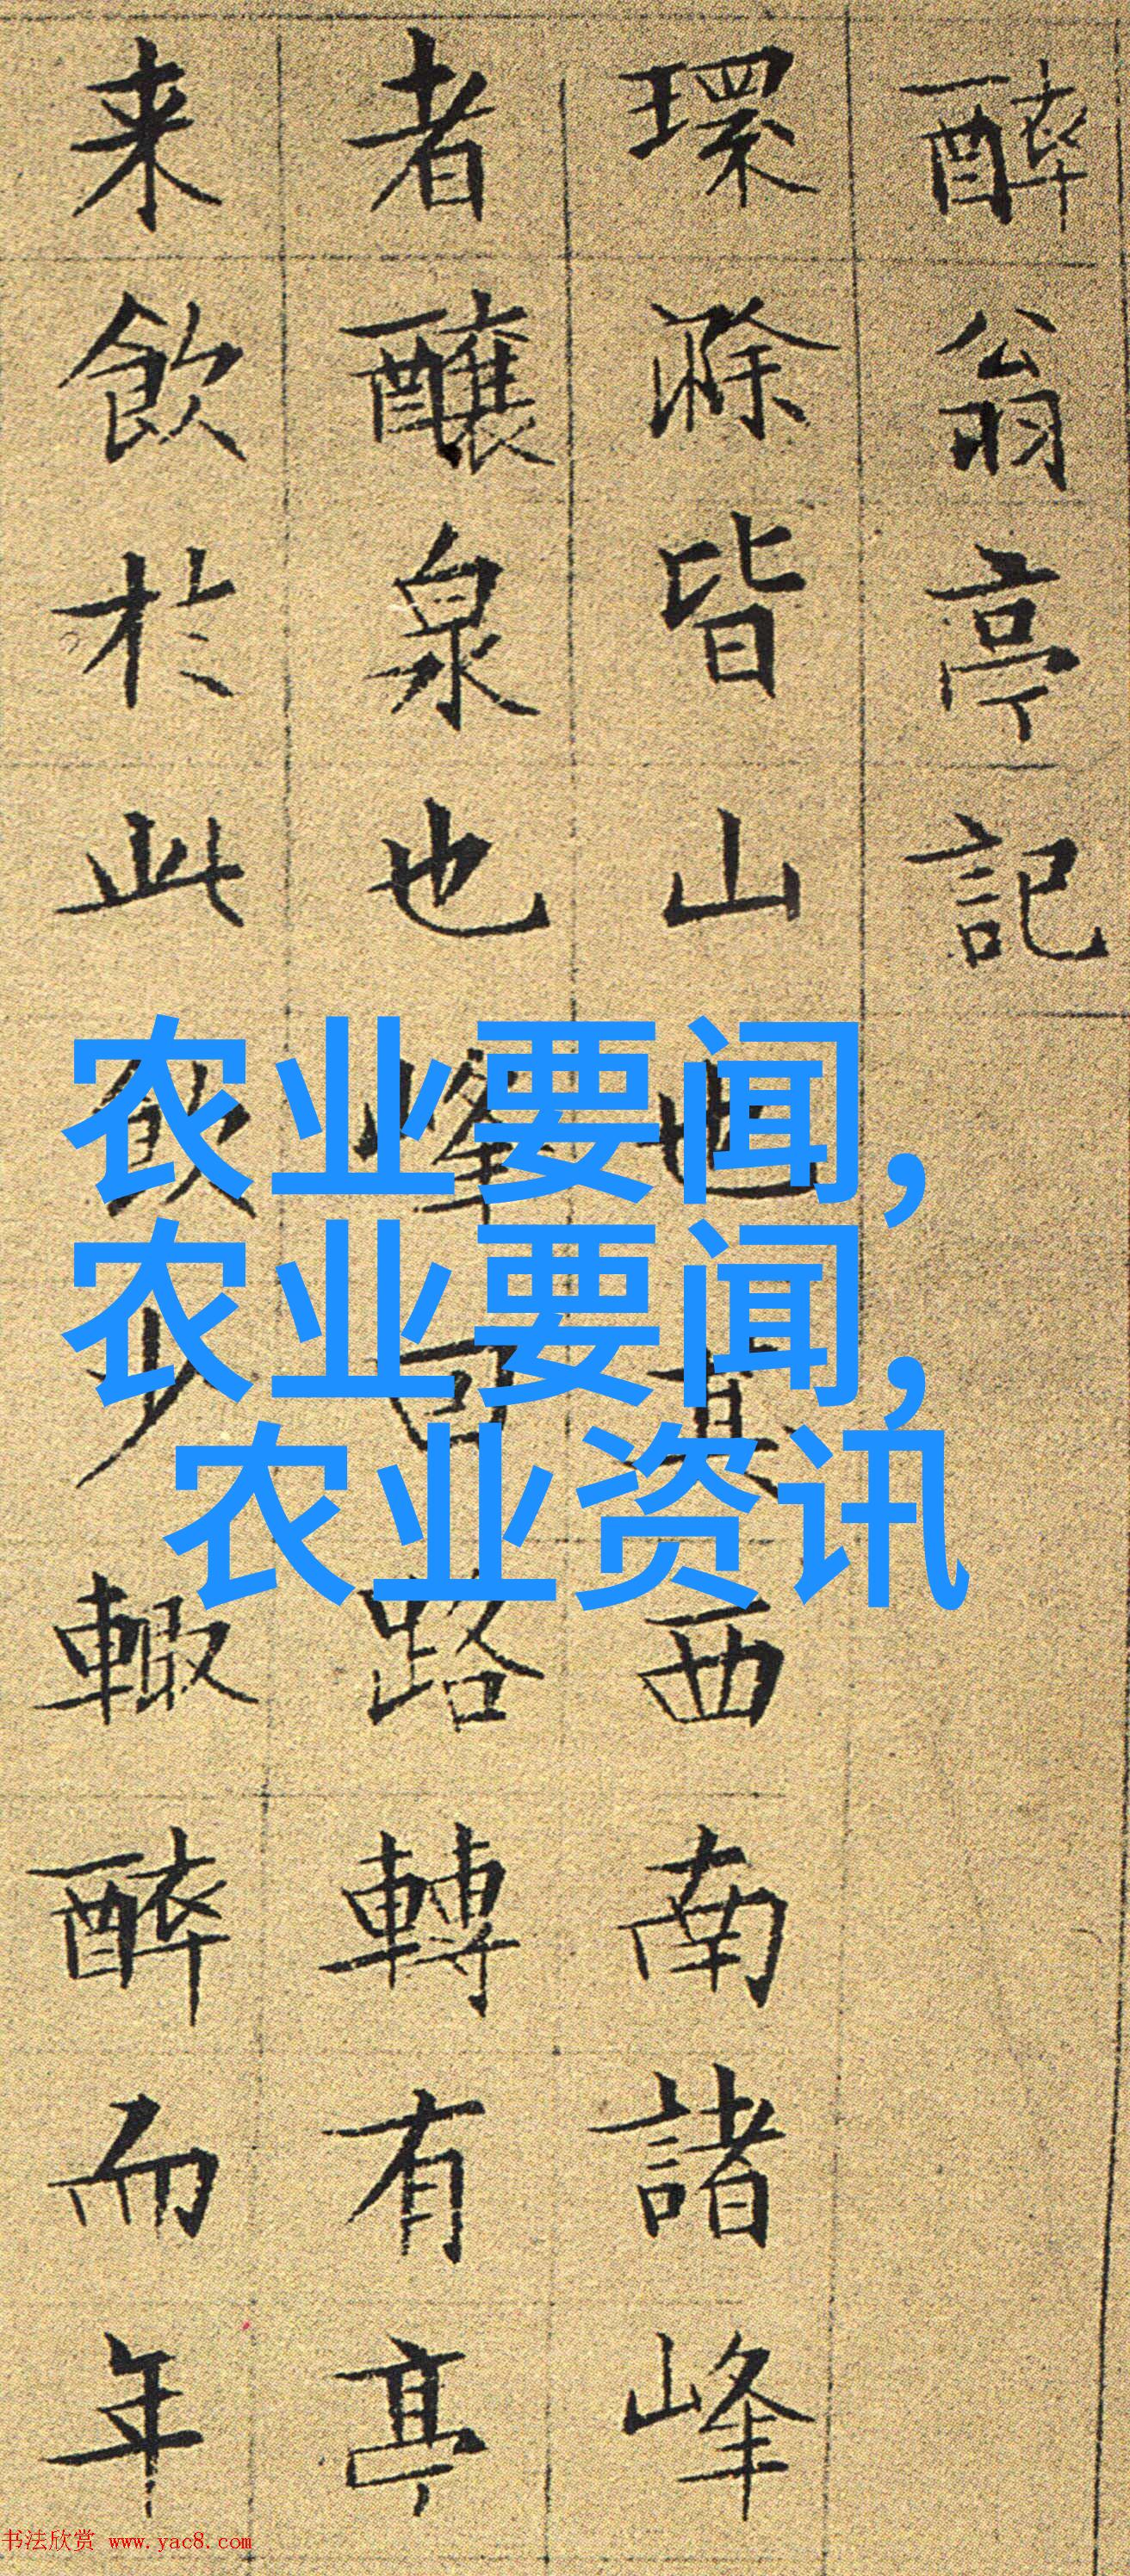 醉翁亭記
環滁皆山也其西南諸峰
者釀泉也峰回路轉有亭
来飲於此飲少輙醉而年
农业要闻,
农业要闻,
农业资讯
书法欣赏 www.yac8.com